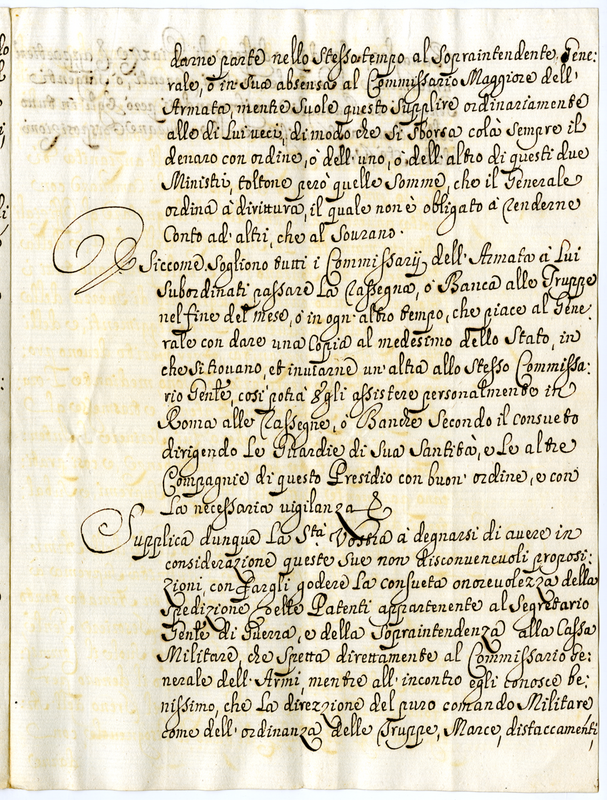 darne parte nello stesso tempo al Sopraintendente Gene:
rale, ò in sua absensa al Commissario Maggiore dell'
Armata, mentre suole questo supplire ordinariamente
alle di Lui veci, di modo che si sborsa colà sempre il
denaro con ordine, ò dell'uno, ò dell'altro di questi due
Ministri, toltone però quelle somme, che il Generale
ordina à dirittura, il quale non è obligato à renderne
Conto ad altri, che al Sourano.
Siccome sogliono tutti i Commissarij dell'Armata à Lui
subordinati passare La Rassegna, ò Banca alle Truppe
nel fine del mese, ò in ogn'altro tempo, che piace al Gene:
rale con dare una Copia al medesimo dello Stato, in
che si trouano, et inuiarne un'altra allo stesso Commissa:
rio Gen.le, così potrà Egli assistere personalmente in
Roma alle Rassegne, ò Banche secondo il consueto
dirigendo Le Guardie di Sua Santità, e Le altre
Compagnie di questo Presidio con buon'ordine, e con
La necessaria uigilanza
Supplica dunque La S.tà Vostra à degnarsi di auere in
considerazione queste sue non disconuenevoli proposi:
zioni, con fargli godere La consueta onoreuolezza della
spedizione delle Patenti appartenente al Segretario
Gen.le di Guerra, e della Sopraintendenza alla Cassa
Militare, che spetta direttamente al Commissario Ge:
nerale dell'Armi, mentre all'incontro egli conosce be:
nissimo, che La direzzione del puro comando Militare
come dell'ordinanza delle Truppe, Marce, distaccamenti,